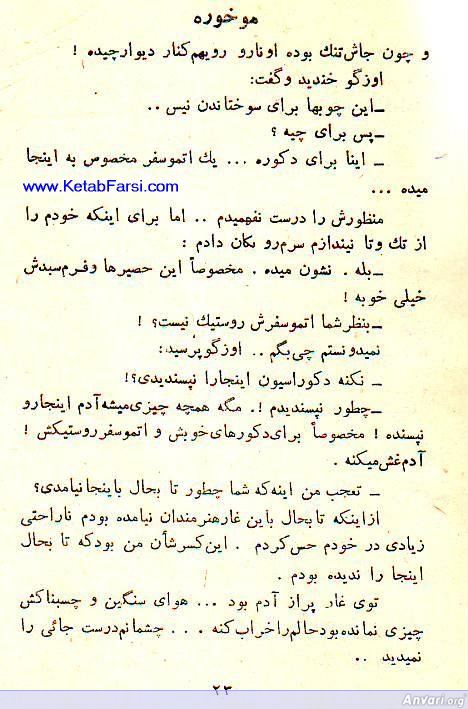 مو خوره
و چون جاش تنك بوده اونارو رويهم كنار ديوار چيده !
اوزگو خنديد و گفت:
ـ اين چوبها براى سوختاندن نيس ..
ـ پس براى چيه ؟
ـ اينا براى دكوره ... يك اتموسفر مخصوص به اينجا
ميده ...
www.KetabFarsi.com
منظورش را درست نفهميدم .. اما براى اينكه خودم را
از تك و تا نيندازم سرم رو تكان دادم :
ـ بله . نشون ميده . مخصوصاً اين حصيرها و فرم سبدش
خيلى خوبه !
ـ بنظر شما اتموسفرش روستيك نيست؟ !
نميدونستم چى بگم .. اوزگو پرسيد:
ـ نكنه دكوراسيون اينجا را نپسنديدى؟!
ـ چطور نپسنديدم !. مگه همچه چيزى ميشه آدم اينجارو
نپسنده ! مخصوصاً براى دكورهاى خوبش و اتموسفر روستيكش !
آدم غش ميكنه .
ـ تعجب من اينه كه شما چطور تا بحال باينجا نيامدى؟
از اينكه تا بحال باين غار هنرمندان نيامده بودم ناراحتى
زيادى در خودم حس كردم . اين كسر شأن من بود كه تا بحال
اينجا را نديده بودم .
توى غار پر از آدم بود ... هواى سنگين و چسبناكش
چيزى نمانده بود حالم را خراب كنه ... چشمانم درست جائى را
نميديد ..
۲۳
Anvari.org